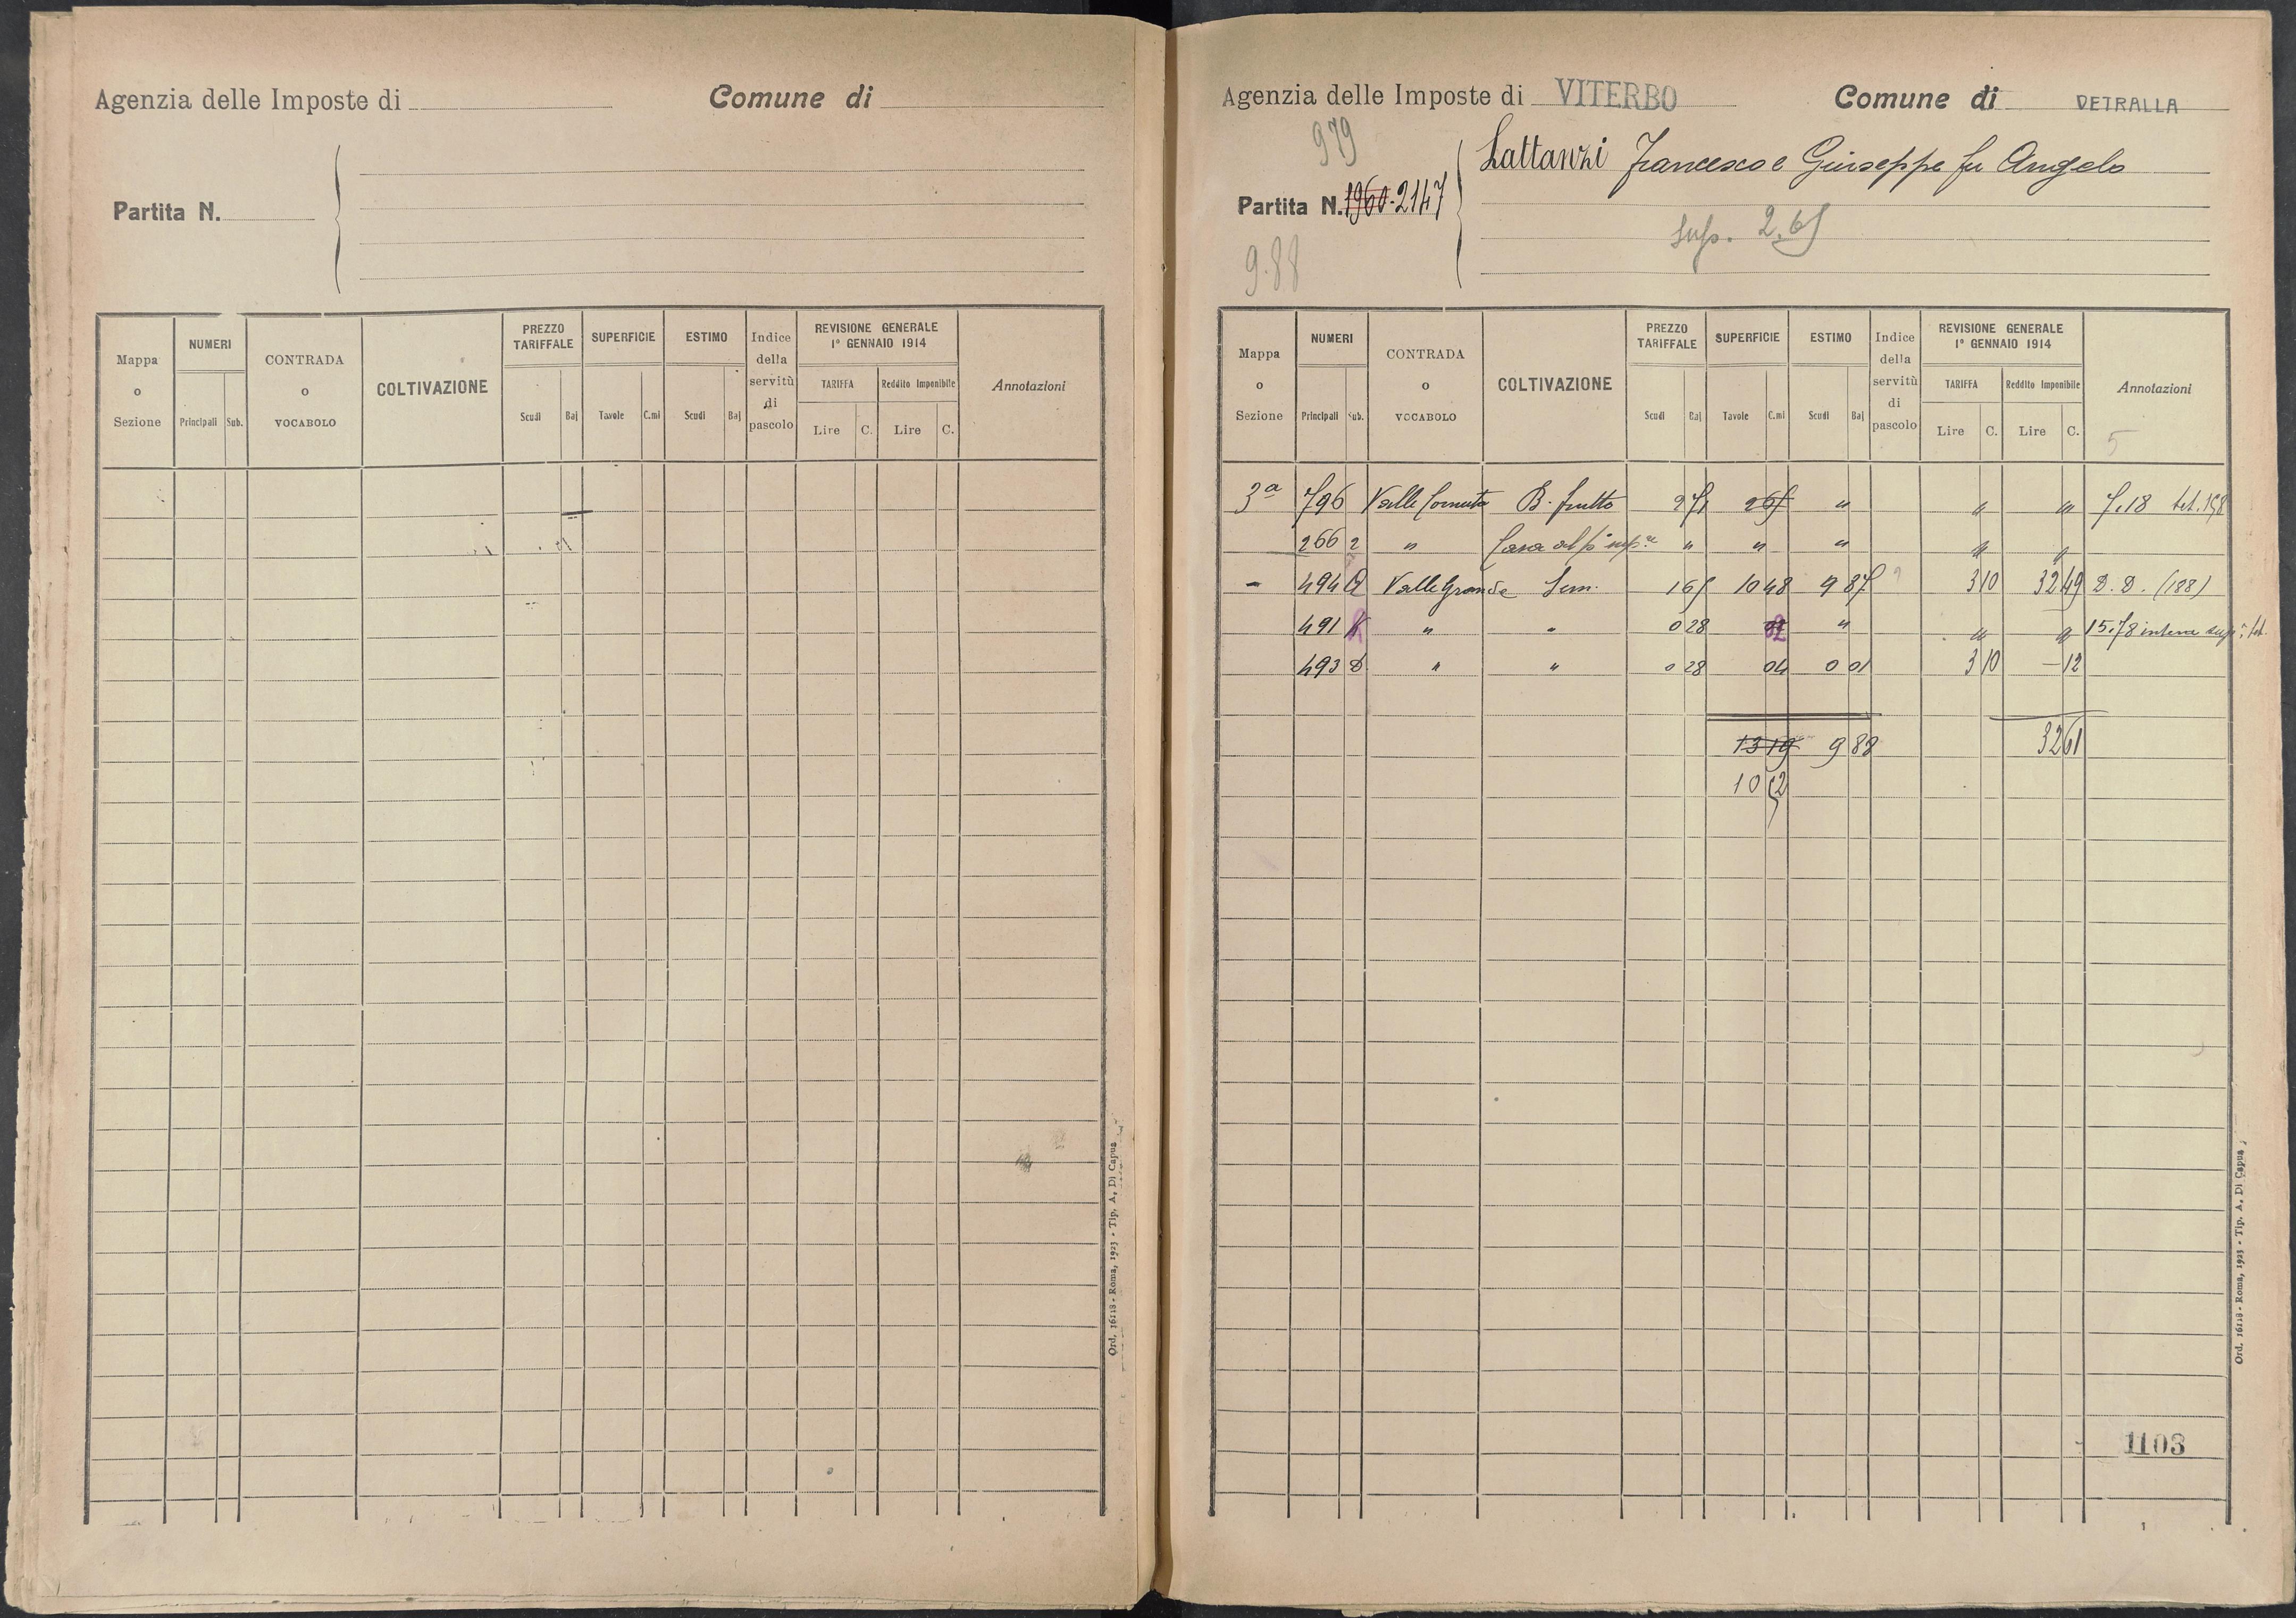 Agenzia delle Imposte di
Comune di
Partita N.
Mappa o Sezione
NUMERI
Principali Sub.
CONTRADA o VOCABOLO
COLTIVAZIONE
PREZZO TARIFFALE
Scudi Baj
SUPERFICIE
Tavole C.mi
ESTIMO
Scudi Baj
Indice della servitù di pascolo
REVISIONE GENERALE
1° GENNAIO 1914
TARIFFA Reddito Imponibile
Lire C. Lire C.
Annotazioni
Ord. 16118 - Roma, 1923 - Tip. A. Di Capua
Agenzia delle Imposte di VITERBO
Comune di VETRALLA
979
Lattanzi Francesco e Giuseppe fu Angelo
Partita N. 1960 - 2147
Sup. 2.65
9.88
Mappa o Sezione
NUMERI
Principali Sub.
CONTRADA o VOCABOLO
COLTIVAZIONE
PREZZO TARIFFALE
Scudi Baj
SUPERFICIE
Tavole C.mi
ESTIMO
Scudi Baj
Indice della servitù di pascolo
REVISIONE GENERALE
1° GENNAIO 1914
TARIFFA Reddito Imponibile
Lire C. Lire C.
Annotazioni
5
3a 796 Valle Cornuta B. frutto 2 71 2 65 " " " 7.18
266 2 " Casa " " " " "
- 494 Q Valle Grande Sem. 1 65 10 48 9 87 3 10 32 49 D. D. (188)
491 K " " 0 28 02 " " " 15.78 intera sup. tet.
493 D " " 0 28 04 0 01 3 10 - 12
13 19 9 88 32 61
10 52
1103
Ord. 16118 - Roma, 1923 - Tip. A. Di Capua